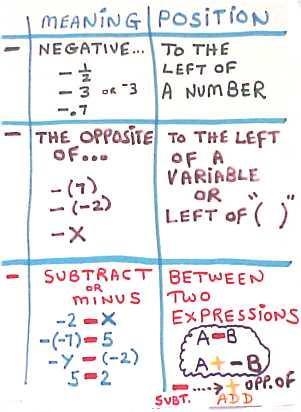 MEANING POSITION
- NEGATIVE... TO THE
- 1/2 LEFT OF
- 3 OR -3 A NUMBER
-.7
- THE OPPOSITE TO THE LEFT
OF... OF A
VARIABLE
-(7) OR
-(-2) LEFT OF "( )"
-X
- SUBTRACT BETWEEN
OR TWO
MINUS EXPRESSIONS
-2 - X A - B
-(-7) - 5
-Y - (-2) A + - B
5 - 2 - ....> + OPP. OF
SUBT. ADD